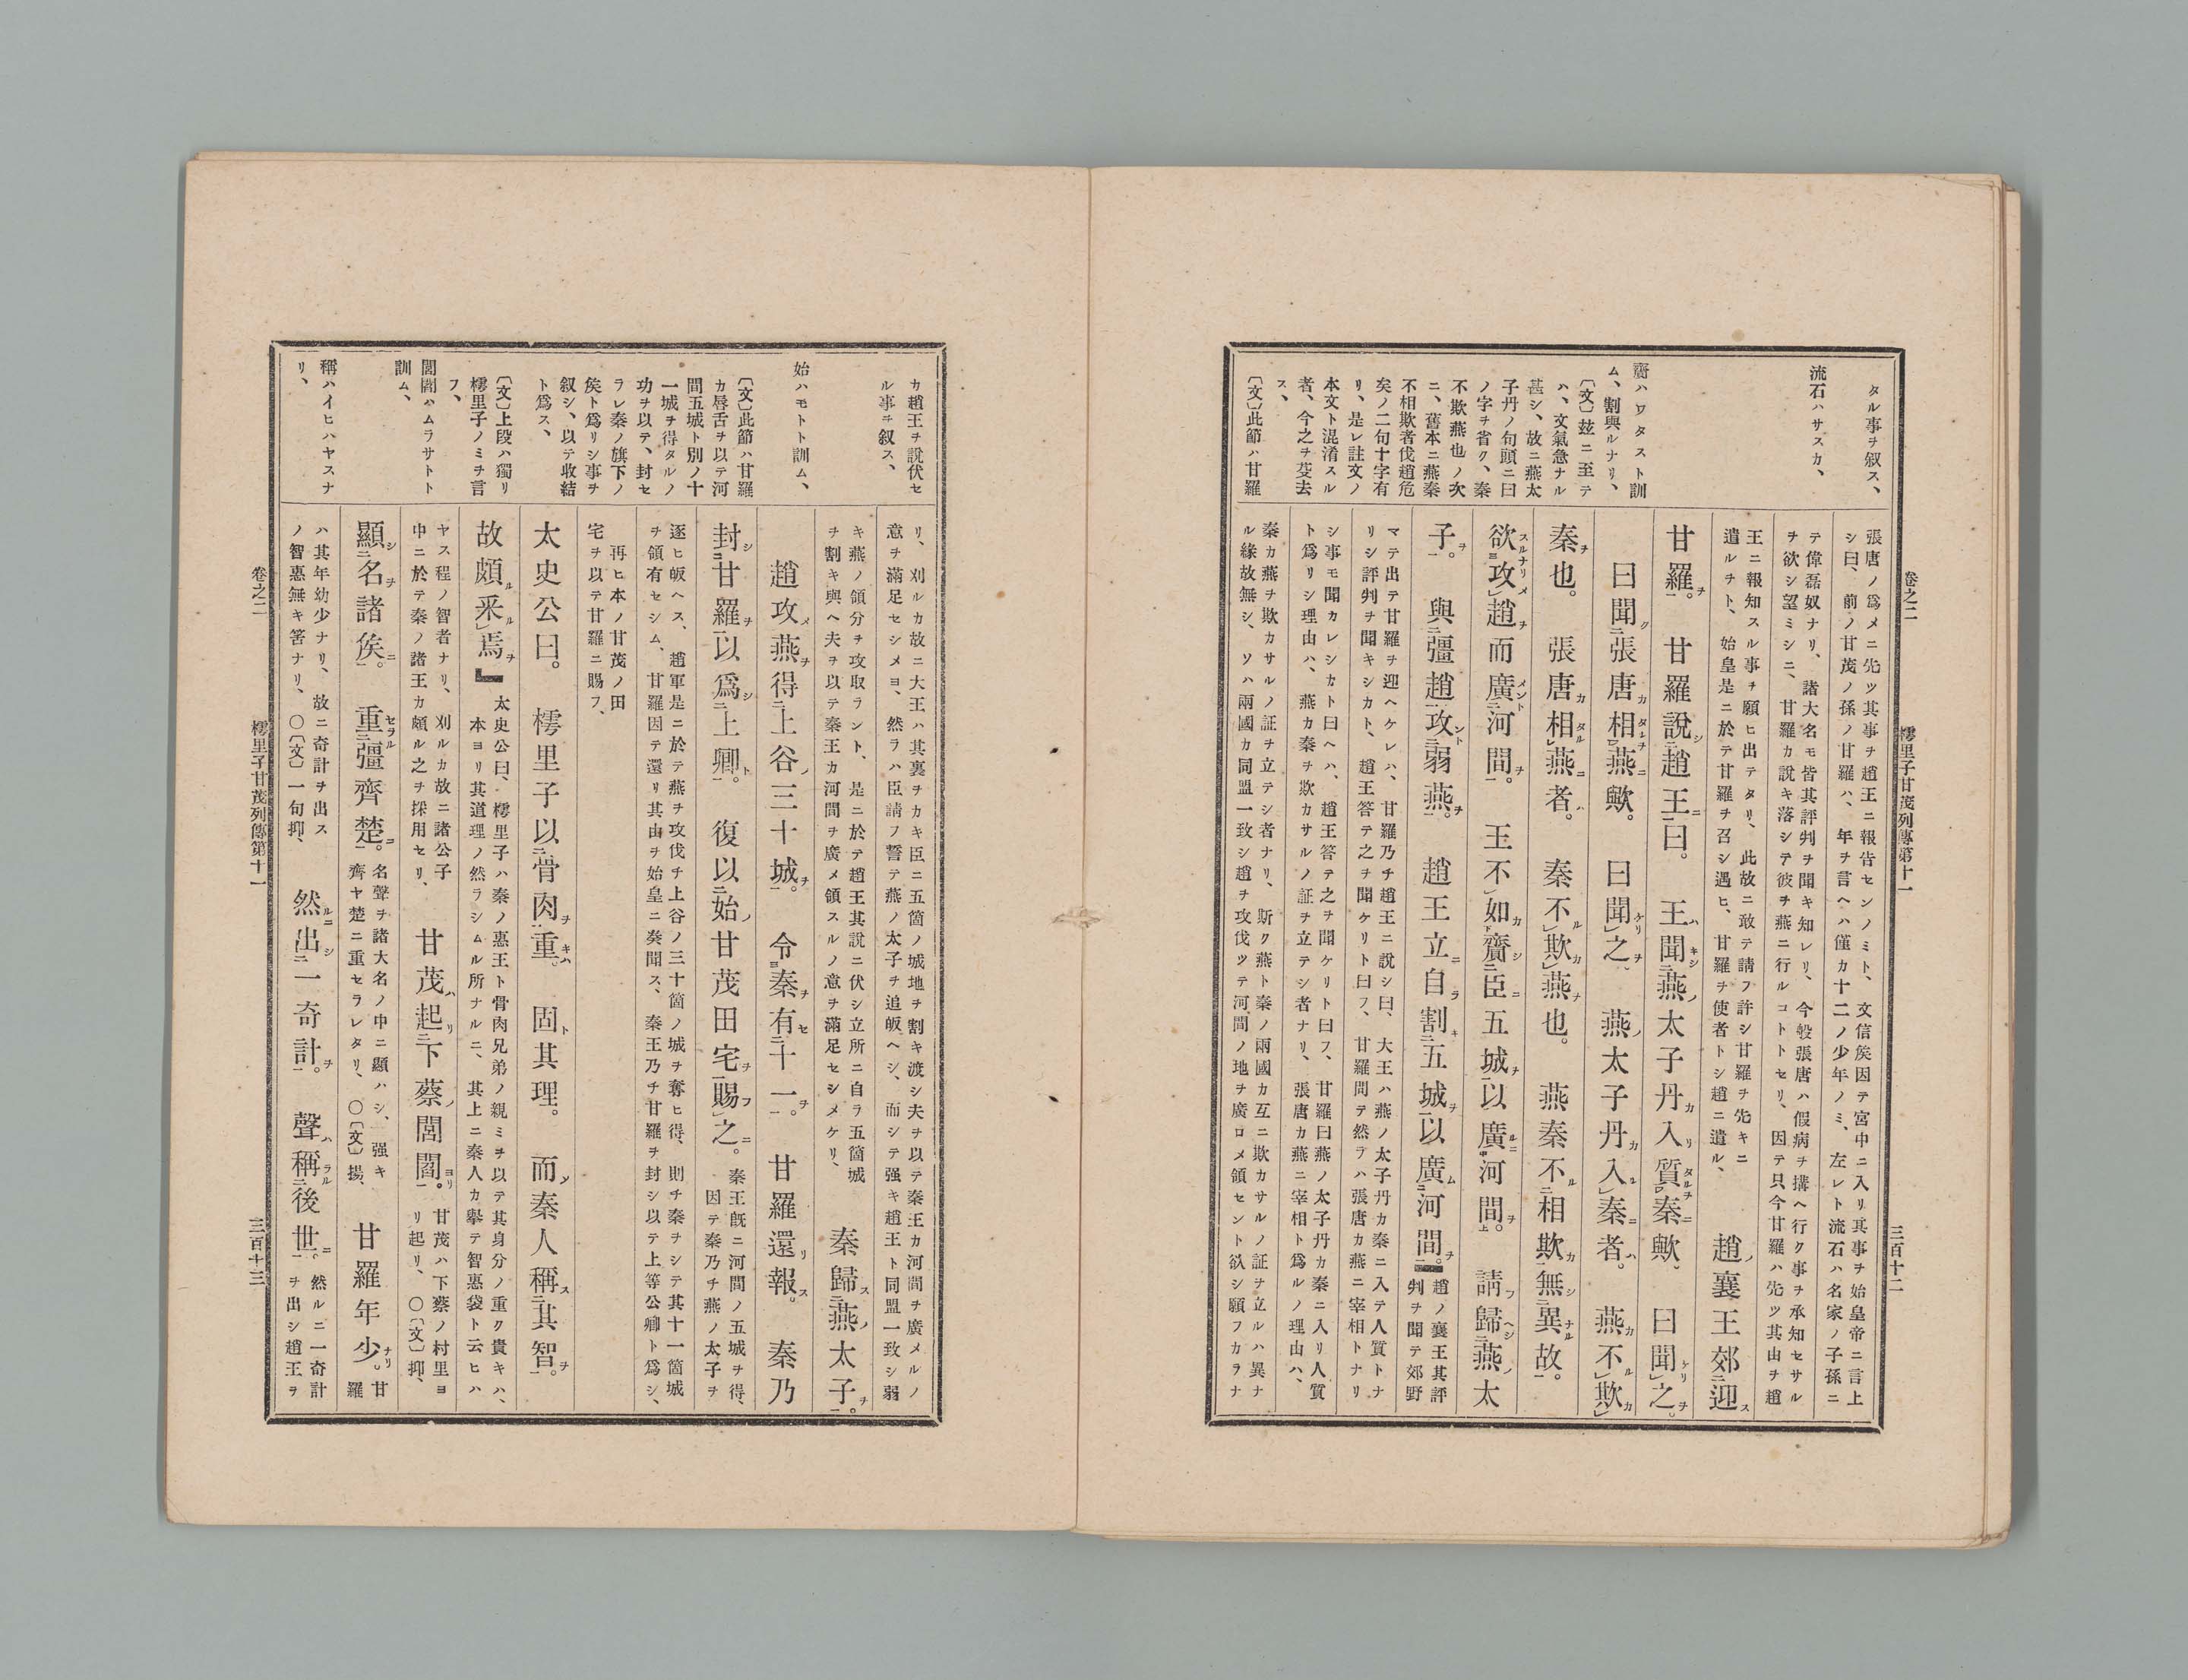 卷之二　樗里子甘茂列傳第十一　三百十二
タル事ヲ叙ス、
流石ハサスカ、
齎ハワタスト訓
ム、割與ルナリ、
〔文〕玆ニ至テ
ハ、文氣急ナル
甚シ、故ニ燕太
子丹ノ句頭ニ曰
ノ字ヲ省ク、秦
不欺燕也ノ次
ニ、舊本ニ燕秦
不相欺者伐趙危
矣ノ二句十字有
リ、是レ註文ノ
本文ト混淆スル
者、今之ヲ芟去
ス、
〔文〕此節ハ甘羅
張唐ノ爲メニ先ツ其事ヲ趙王ニ報告センノミト、　文信矦因テ宮中ニ入リ其事ヲ始皇帝ニ言上
シ曰、前ノ甘茂ノ孫ノ甘羅ハ、年ヲ言ヘハ僅カ十二ノ少年ノミ、左レト流石ハ名家ノ子孫ニ
テ偉磊奴ナリ、諸大名モ皆其評判ヲ聞キ知レリ、今般張唐ハ假病ヲ搆ヘ行ク事ヲ承知セサル
ヲ欲シ望ミシニ、甘羅カ說キ落シテ彼ヲ燕ニ行ルコトトセリ、因テ只今甘羅ハ先ツ其由ヲ趙
王ニ報知スル事ヲ願ヒ出テタリ、此故ニ敢テ請フ許シ甘羅ヲ先キニ
遣ルヲト、始皇是ニ於テ甘羅ヲ召シ遇ヒ、甘羅ヲ使者トシ趙ニ遣ル、
趙襄王郊迎
甘羅。甘羅說趙王曰。王聞燕太子丹入質秦歟。曰聞之。
曰聞張唐相燕歟。曰聞之。燕太子丹入秦者。燕不欺
秦也。張唐相燕者。秦不欺燕也。燕秦不相欺無異故。
欲攻趙而廣河間。王不如齎臣五城以廣河間。請歸燕太
子。與彊趙攻弱燕。趙王立自割五城以廣河間。
趙ノ襄王其評
判ヲ聞テ郊野
マテ出テ甘羅ヲ迎ヘケレハ、甘羅乃チ趙王ニ說シ曰、大王ハ燕ノ太子丹カ秦ニ入テ人質トナ
リシ評判ヲ聞キシカト、趙王答テ之ヲ聞ケリト曰フ、甘羅問テ然ラハ張唐カ燕ニ宰相トナリ
シ事モ聞カレシカト曰ヘハ、趙王答テ之ヲ聞ケリト曰フ、甘羅曰燕ノ太子丹カ秦ニ入リ人質
ト爲リシ理由ハ、燕カ秦ヲ欺カサルノ証ヲ立テシ者ナリ、張唐カ燕ニ宰相ト爲ルノ理由ハ、
秦カ燕ヲ欺カサルノ証ヲ立テシ者ナリ、斯ク燕ト秦ノ兩國カ互ニ欺カサルノ証ヲ立ルハ異ナ
ル緣故無シ、ソハ兩國カ同盟一致シ趙ヲ攻伐ツテ河間ノ地ヲ廣ロメ領セント欲シ願フカラナ
カ趙王ヲ說伏セ
ル事ヲ叙ス、
始ハモトト訓ム、
〔文〕此節ハ甘羅
カ唇舌ヲ以テ河
間五城ト別ノ十
一城ヲ得タルノ
功ヲ以テ、封セ
ラレ秦ノ旗下ノ
矦ト爲リシ事ヲ
叙シ、以テ收結
ト爲ス、
〔文〕上段ハ獨リ
樗里子ノミヲ言
フ、
閭閻ハムラサトト
訓ム、
稱ハイヒハヤスナ
リ、
リ、刈ルカ故ニ大王ハ其裏ヲカキ臣ニ五箇ノ城地ヲ割キ渡シ夫ヲ以テ秦王カ河間ヲ廣メルノ
意ヲ滿足セシメヨ、然ラハ臣請フ誓テ燕ノ太子ヲ追皈ヘシ、而シテ强キ趙王ト同盟一致シ弱
キ燕ノ領分ヲ攻取ラント、是ニ於テ趙王其說ニ伏シ立所ニ自ラ五箇城
ヲ割キ與ヘ夫ヲ以テ秦王カ河間ヲ廣メ領スルノ意ヲ滿足セシメケリ、
秦歸燕太子。
趙攻燕得上谷三十城。令秦有十一。甘羅還報。秦乃
封甘羅以爲上卿。復以始甘茂田宅賜之。
秦王旣ニ河間ノ五城ヲ得、
因テ秦乃チ燕ノ太子ヲ
逐ヒ皈ヘス、趙軍是ニ於テ燕ヲ攻伐チ上谷ノ三十箇ノ城ヲ奪ヒ得、則チ秦ヲシテ其十一箇城
ヲ領有セシム、甘羅因テ還リ其由ヲ始皇ニ奏聞ス、秦王乃チ甘羅ヲ封シ以テ上等公卿ト爲シ、
再ヒ本ノ甘茂ノ田
宅ヲ以テ甘羅ニ賜フ、
太史公曰。樗里子以骨肉重。固其理。而秦人稱其智。
故頗釆焉。
太史公曰、樗里子ハ秦ノ惠王ト骨肉兄弟ノ親ミヲ以テ其身分ノ重ク貴キハ、
本ヨリ其道理ノ然ラシムル所ナルニ、其上ニ秦人カ擧テ智惠袋ト云ヒハ
ヤス程ノ智者ナリ、刈ルカ故ニ諸公子
中ニ於テ秦ノ諸王カ頗ル之ヲ採用セリ、
甘茂起下蔡閭閻。
甘茂ハ下蔡ノ村里ヨ
リ起リ、〇〔文〕抑、
顯名諸矦。重彊齊楚。
名聲ヲ諸大名ノ中ニ顯ハシ、强キ
齊ヤ楚ニ重セラレタリ、〇〔文〕揚、
甘羅年少。
甘
羅
ハ其年幼少ナリ、故ニ奇計ヲ出ス
ノ智惠無キ筈ナリ、〇〔文〕一句抑、
然出一奇計。聲稱後世。
然ルニ一奇計
ヲ出シ趙王ヲ
卷之二　樗里子甘茂列傳第十一　三百十三